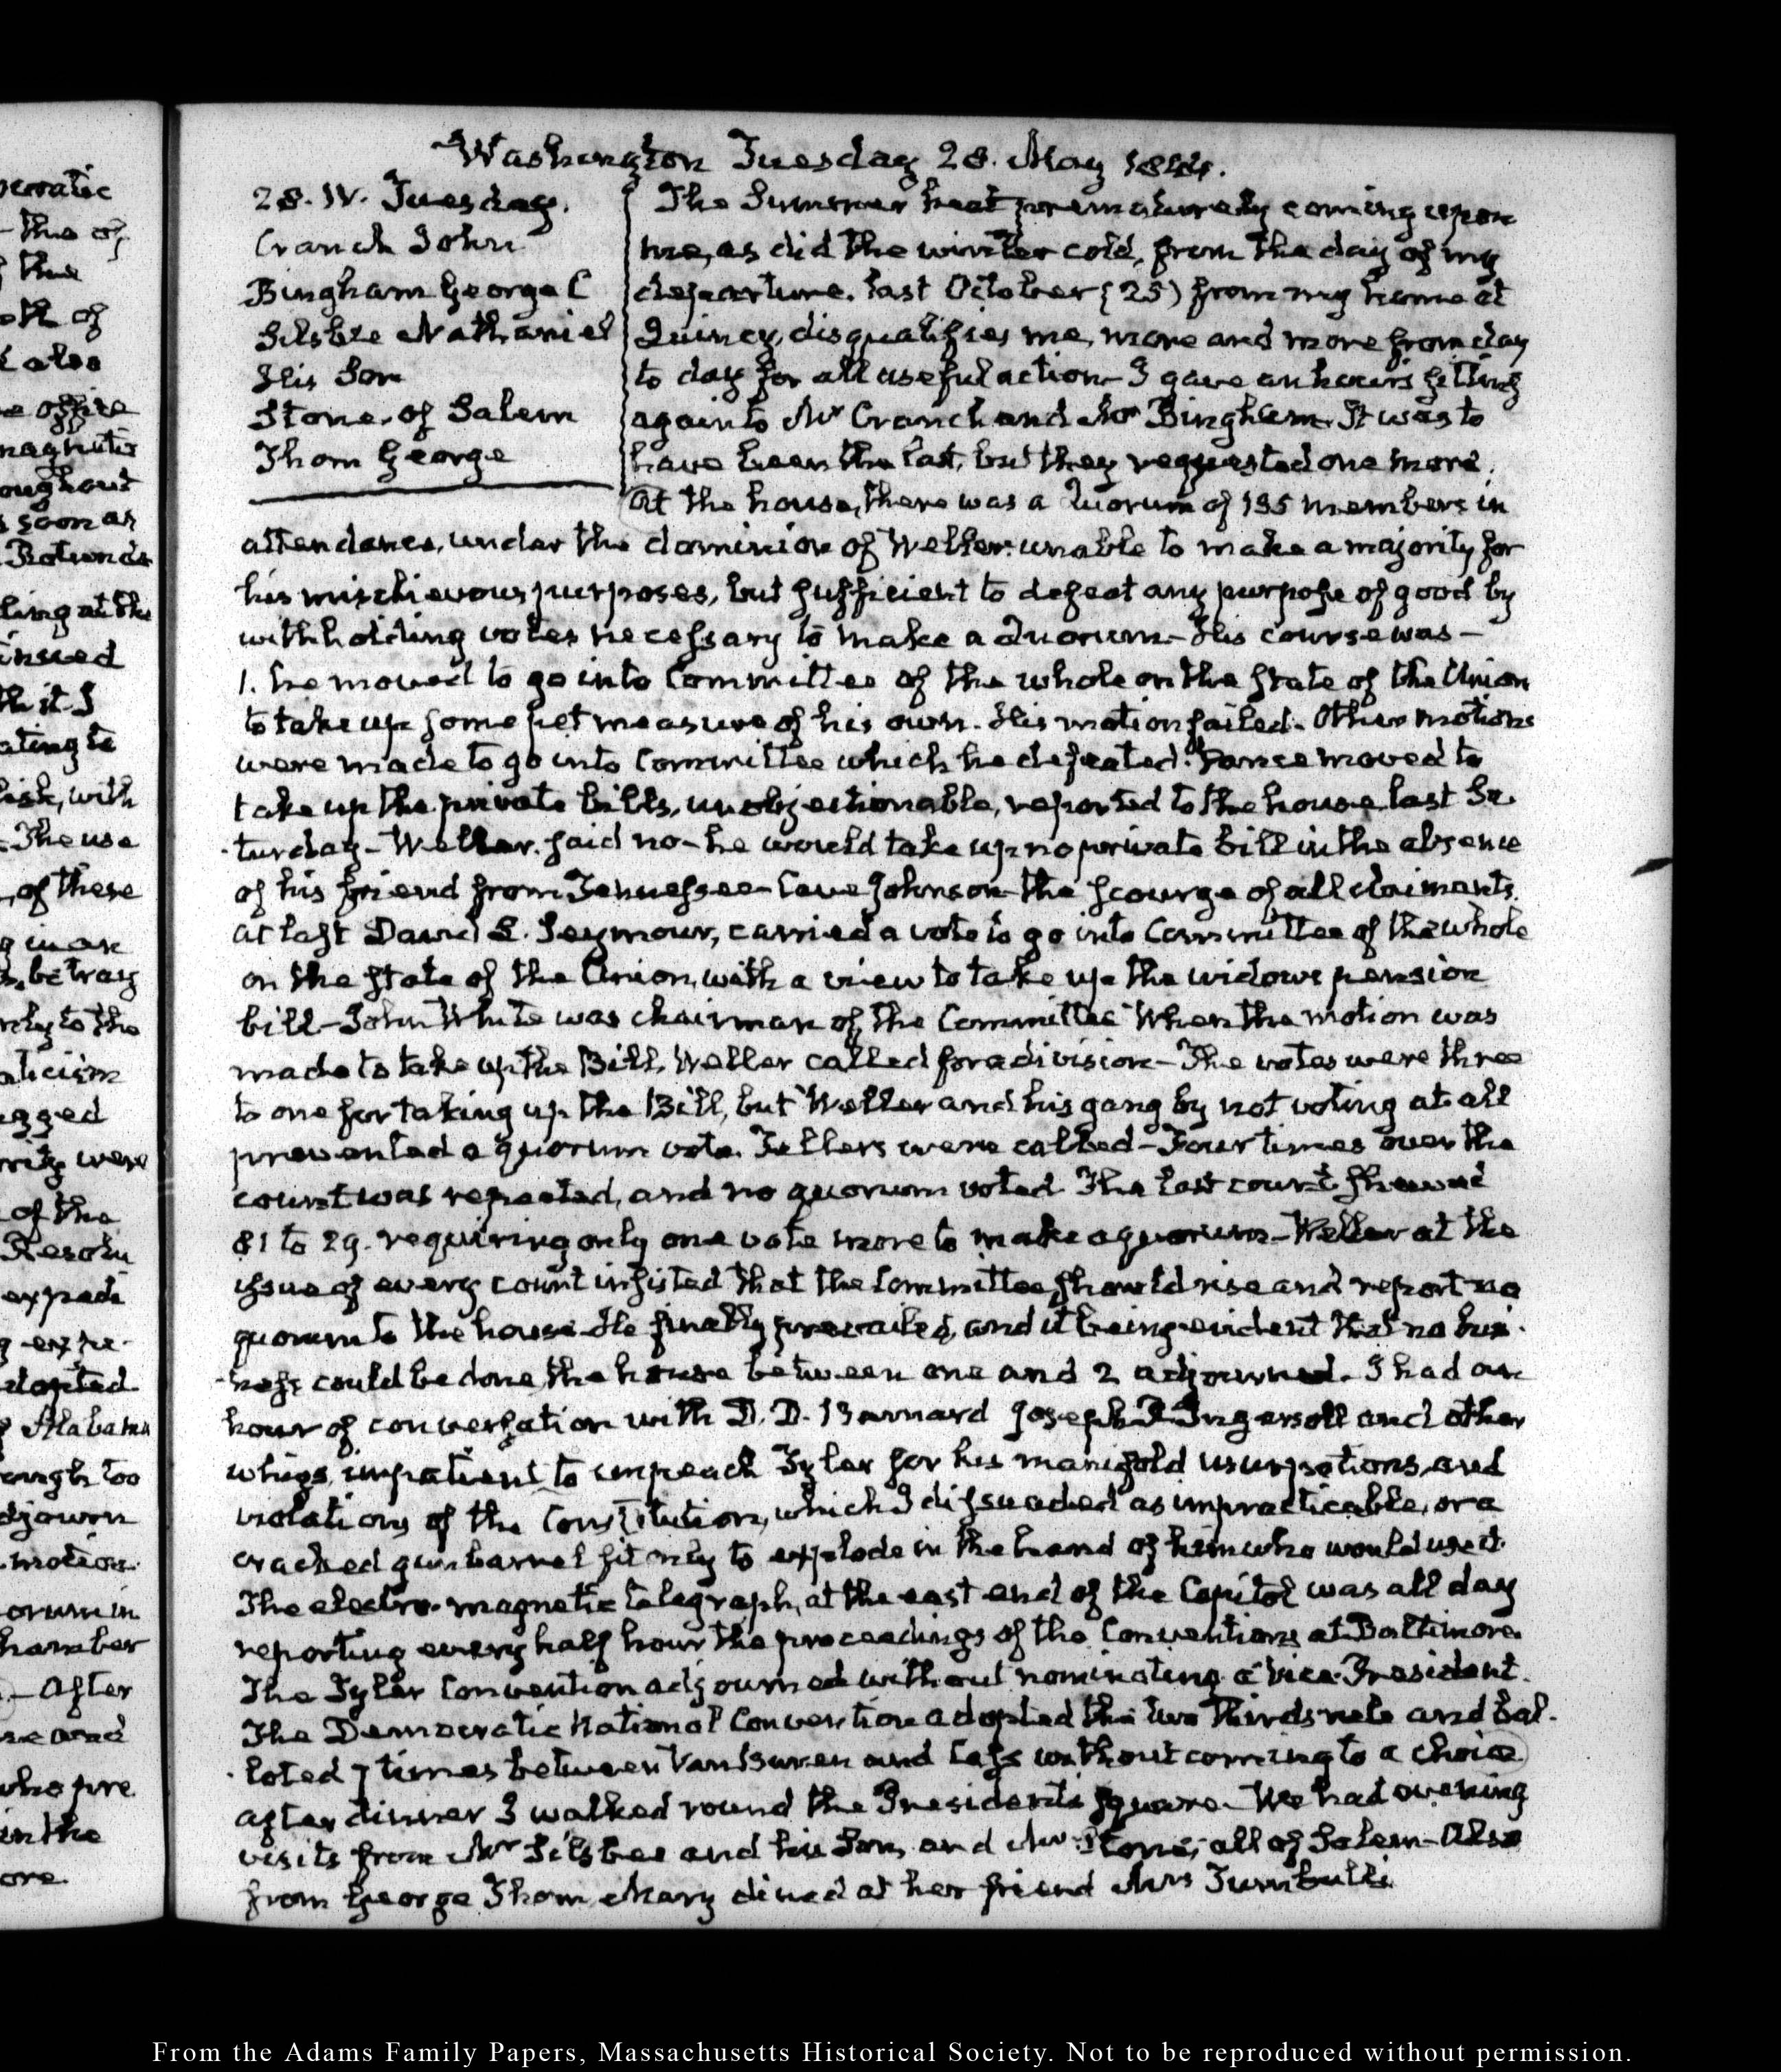 Washington Tuesday 28. May 1844.
28. IV. Tuesday.
Cranch John
Bingham George C
Silsbee Nathaniel
His Son
Stone, of Salem
Thom George
The Summer heat prematurely coming upon
me, as did the winter cold, from the day of my
departure, last October (25) from my home at
Quincy, disqualifies me, more and more from day
to day for all useful action— I gave an hour's sitting
again to Mr Cranch and Mr Bingham. It was to
have been the last, but they requested one more.
At the house, there was a Quorum of 135 members in
attendance, under the dominion of Weller: unable to make a majority for
his mischievous purposes, but sufficient to defeat any purpose of good by
withholding votes necessary to make a Quorum— His course was—
1. he moved to go into Committee of the whole on the State of the Union
to take up some pet measure of his own. His motion failed. Other motions
were made to go into Committee which he defeated. moved to
take up the private bills, unobjectionable, reported to the house last Sa-
turday— Weller said no— he would take up no private bill in the absence
of his friend from Tennessee— Cave Johnson— the scourge of all claimants.
At last David L. Seymour, carried a vote to go into Committee of the whole
on the State of the Union, with a view to take up the widows pension
bill— John White was chairman of the Committee When the motion was
made to take up the Bill, Weller called for a division— The votes were three
to one for taking up the Bill, but Weller and his gang by not voting at all
prevented a quorum vote. Tellers were called— Four times over the
count was repeated, and no quorum voted. The last count shewed
81 to 29. requiring only one vote more to make a quorum— Weller at the
issue of every count insisted that the Committee should rise and report no
quorum to the house— He finally prevailed, and it being evident that no busi-
ness could be done, the house between one and 2 adjourned. I had an
hour of conversation with D. D. Barnard Joseph R Ingersoll and other
whigs, impatient to impeach Tyler for his manifold usurpations, and
violations of the Constitution, which I dissuaded as impracticable, or a
cracked gun barrel fit only to explode in the hand of him who would use it.
The electro-magnetic telegraph, at the east end of the Capitol was all day
reporting every half hour the proceedings of the Conventions at Baltimore.
The Tyler Convention adjourned without nominating a Vice-President.
The Democratic National Convention adopted the two thirds rule and bal-
loted 7 times between Van Buren and Cass without coming to a choice
after dinner I walked round the President's square— We had evening
visits from Mr Silsbee and his Son, and Mr Stone, all of Salem— Also
from George Thom. Mary dined at her friend Mrs Turnbull's
ocratic
the of
the
of
also
office
soon as
Rotunda
ling at the
ating to
with
The use
of these
betray
to the
were
of the
Resolu
adopted
Alabama
too
adjourn
motion
After
who pre
in the
From the Adams Family Papers, Massachusetts Historical Society. Not to be reproduced without permission.